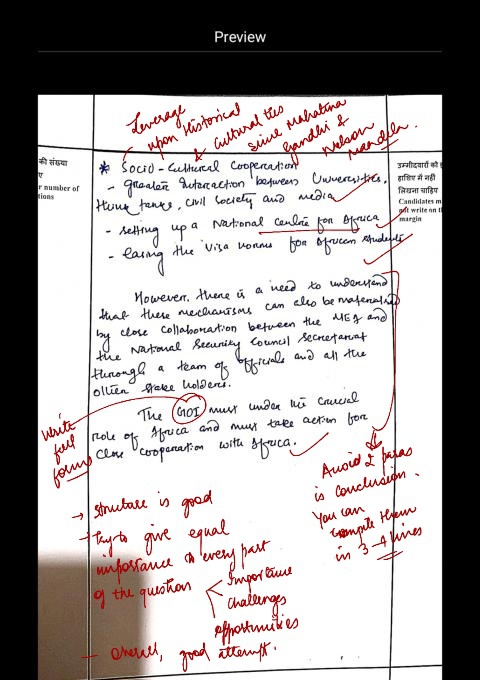 Preview
Leverage
upon Historical
& cultural ties
since Mahatma
Gandhi &
Nelson
Mandela.
की संख्या
ए
r number of
tions
उम्मीदवारों को इ
हाशिए में नहीं
लिखना चाहिए
Candidates m
not write on th
margin
* Socio-Cultural Cooperation
- greater Interaction between Universities,
think tanks, civil society and media
- setting up a National Centre for Africa
- easing the Visa norms for African students
However, there is a need to understand
that these mechanisms can also be materialised
by close collaboration between the MEA and
the National Security Council Secretariat
through a team of officials and all the
other stake holders.
The GOI must under the crucial
role of Africa and must take action for
close cooperation with Africa.
Write
full
forms
Avoid 2 paras
is conclusion.
You can
compile them
in 3-4 lines
→ structure is good
→ Try to give equal
importance to every part
of the question
Importance
challenges
opportunities
- Overall, good attempt.